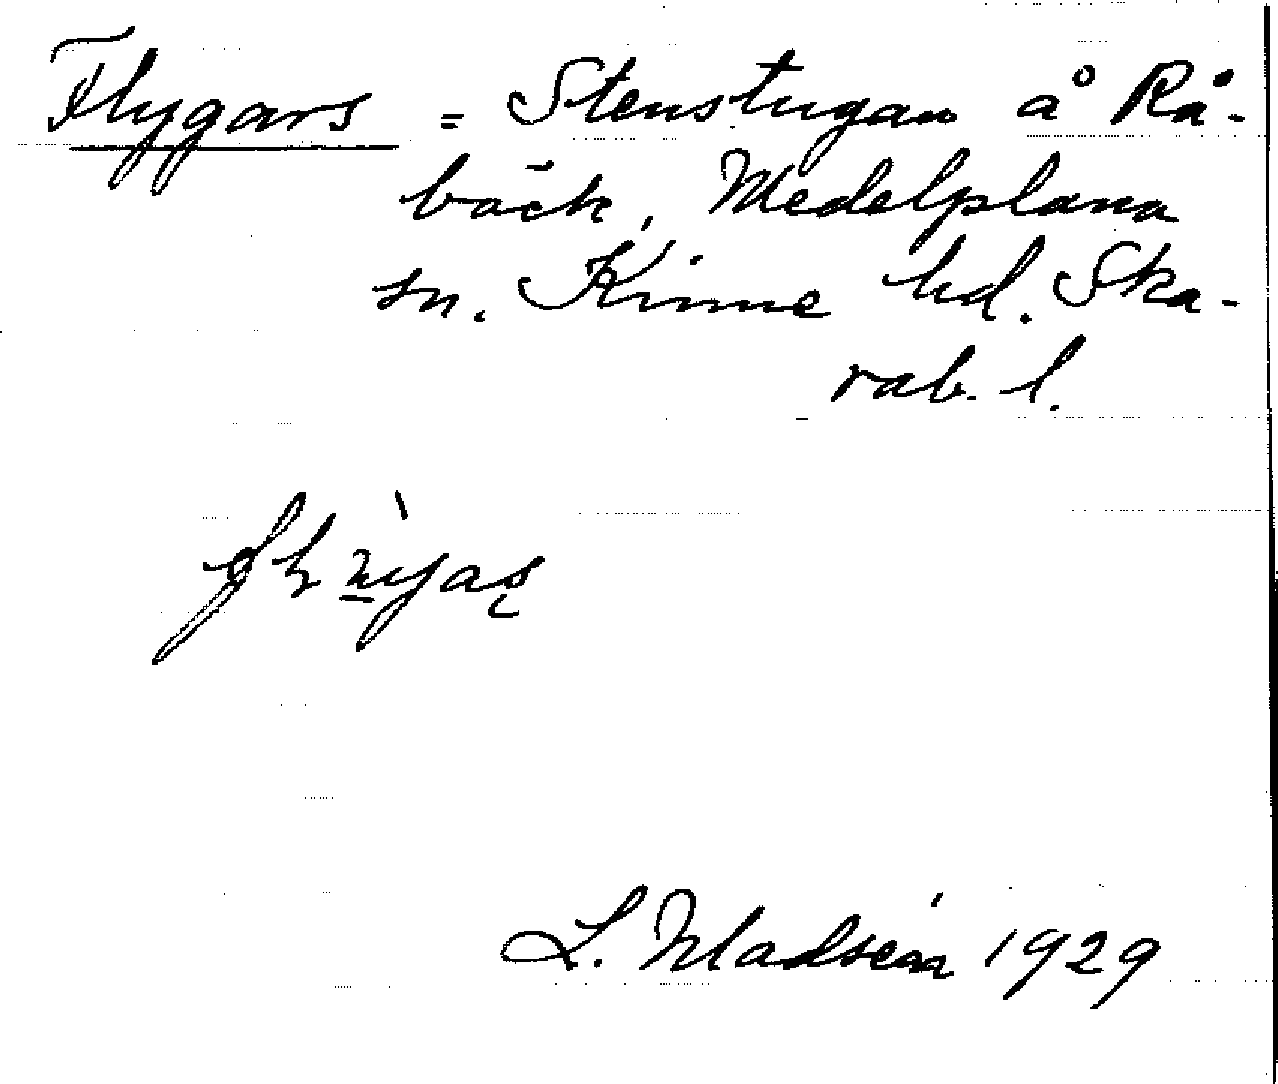 Flygars = Stenstugan å Rå-
bäck, Medelplana
sn. Kinne hd. Ska-
rab. l.
L. Madséin 1929